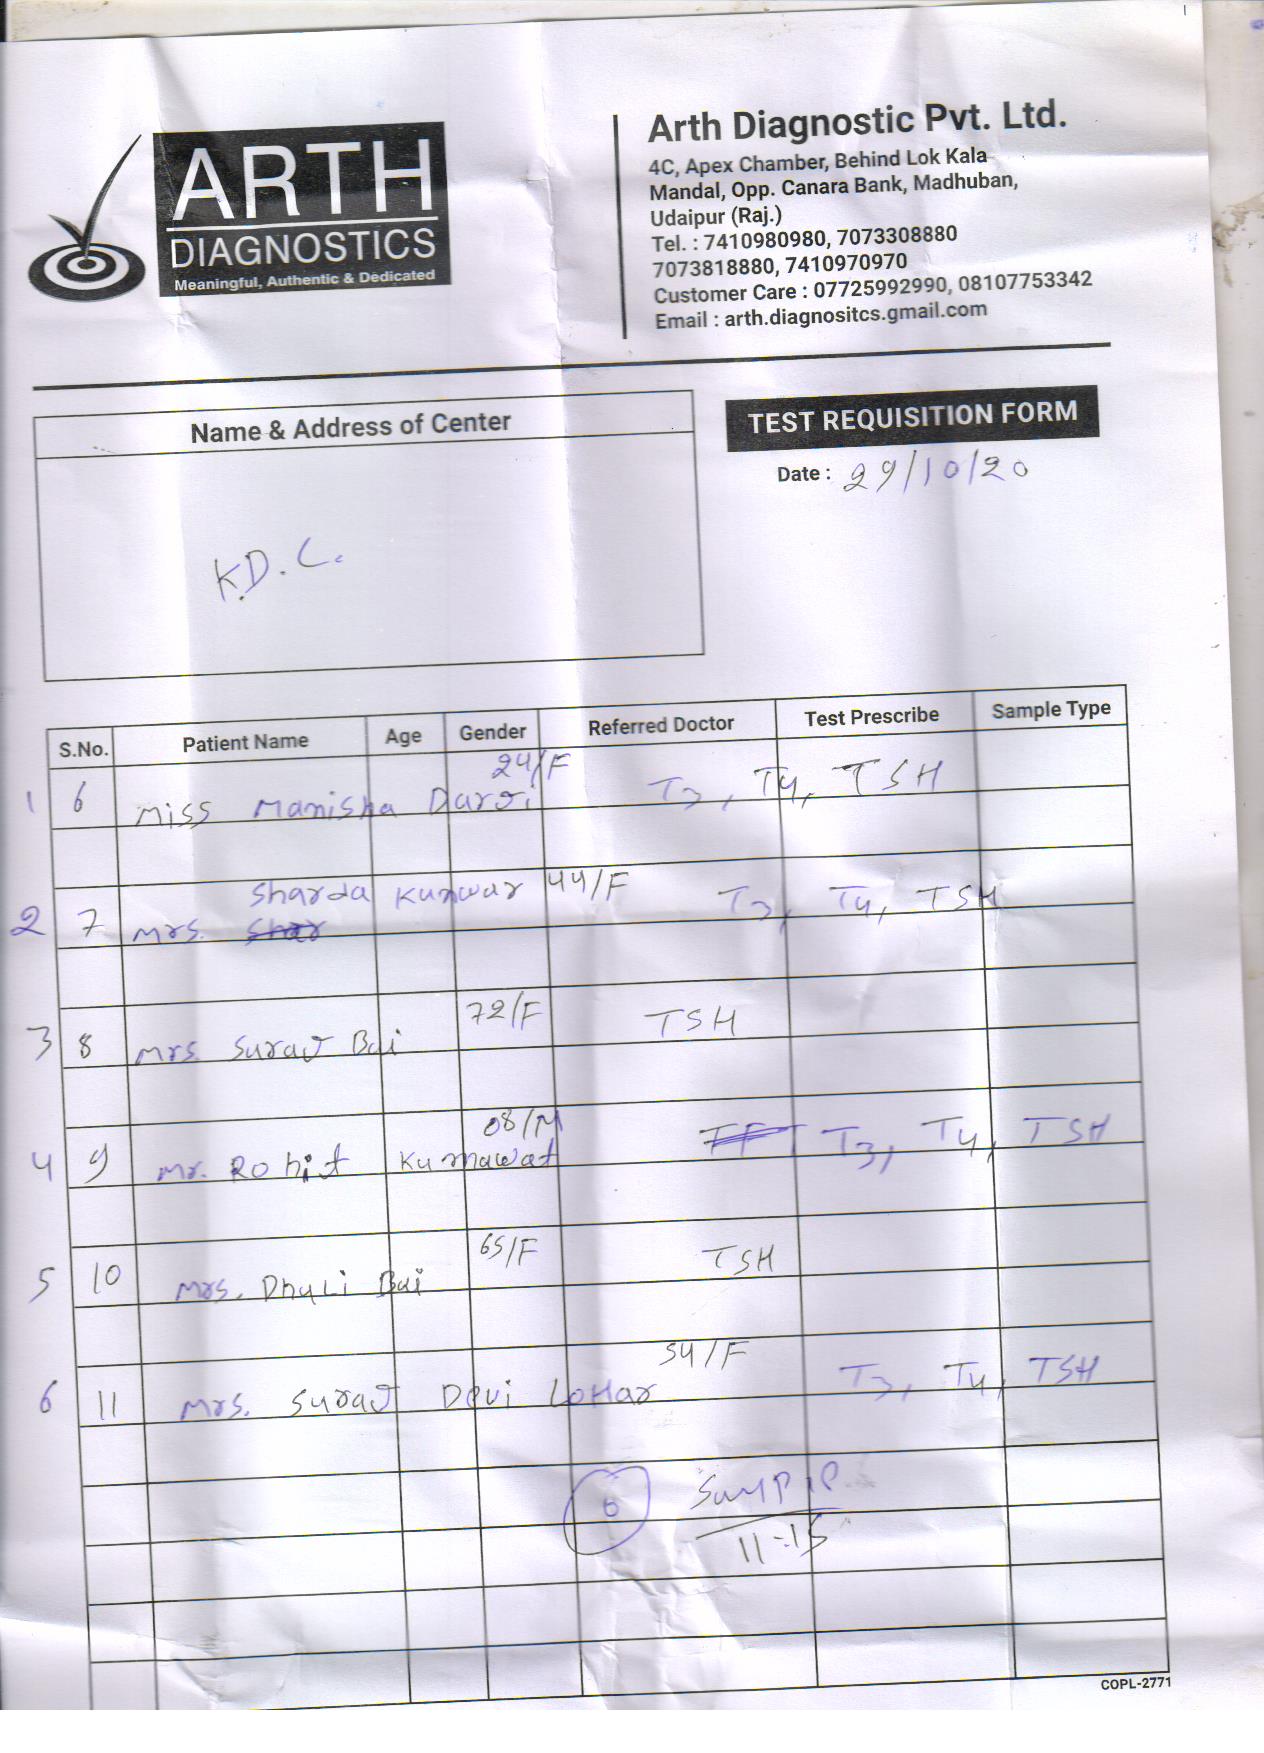 ARTH
DIAGNOSTICS
Meaningful, Authentic & Dedicated
Arth Diagnostic Pvt. Ltd.
4C, Apex Chamber, Behind Lok Kala
Mandal, Opp. Canara Bank, Madhuban,
Udaipur (Raj.)
Tel. : 7410980980, 7073308880
7073818880, 7410970970
Customer Care : 07725992990, 08107753342
Email : arth.diagnositcs.gmail.com
Name & Address of Center
K.D.C.
TEST REQUISITION FORM
Date : 29/10/20
S.No. Patient Name Age Gender Referred Doctor Test Prescribe Sample Type
1 6 Miss Manisha Darji 24/F T3, T4, TSH
2 7 Mrs. Sharda Kunwar 44/F T3, T4, TSH
3 8 Mrs. Suraj Bai 72/F TSH
4 9 Mr. Rohit Kumawat 08/M T3, T4, TSH
5 10 Mrs. Dhuli Bai 65/F TSH
6 11 Mrs. Suraj Devi Lohar 54/F T3, T4, TSH
6
11:15
COPL-2771